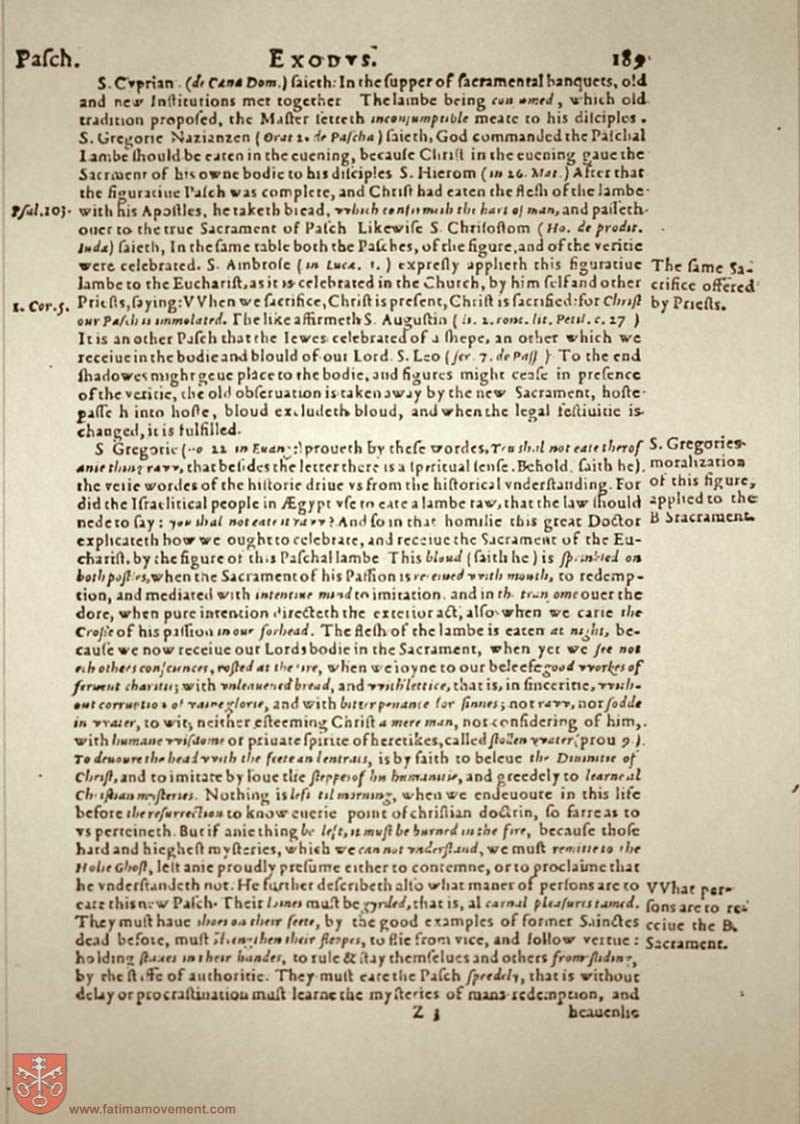 Paſch.
EXODVS.
189
S. Cyprian (de Cæna Dom.) ſaieth: In the ſupper of ſacramental banquets, old
and new Inſtitutions met together The lambe being conſumed, which old
tradition propoſed, the Maſter ſetteth inconſumptible meate to his diſciples.
S. Gregorie Nazianzen (Orat 2. de Paſcha) ſaieth, God commanded the Paſchal
Lambe ſhould be eaten in the euening, becauſe Chriſt in the euening gaue the
Sacrament of his owne bodie to his diſciples S. Hierom (in 26. Mat.) After that
the figuratiue Paſch was complete, and Chriſt had eaten the fleſh of the lambe
Pſal. 103.
with his Apoſtles, he taketh bread, vvhich confirmeth the hart of man, and paſſeth
ouer to the true Sacrament of Paſch Likewiſe S. Chriſoſtom (Ho. de prodit.
Iudæ) ſaieth, In the ſame table both the Paſches, of the figure, and of the veritie
were celebrated. S. Ambroſe (in Luca. 1.) expreſly applieth this figuratiue
lambe to the Euchariſt, as it is celebrated in the Church, by him ſelf and other
The ſame Sa-
crifice offered
by Prieſts.
1. Cor. 5.
Prieſts, ſaying: VVhen we ſacrifice, Chriſt is preſent, Chriſt is ſacrificed: for Chriſt
our Paſch is immolated. The like affirmeth S. Auguſtin (li. 2. cont. lit. Petil. c. 27)
It is an other Paſch that the Iewes celebrated of a ſhepe, an other which we
receiue in the bodie and blould of our Lord. S. Leo (ſer. 7. de Paſſ) To the end
ſhadowes might geue place to the bodie, and figures might ceaſe in preſence
of the veritie, the old obſeruation is taken away by the new Sacrament, hoſte
paſſe h into hoſte, bloud excludeth bloud, and when the legal feſtiuitie is
changed, it is fulfilled.
S Gregorie (ho 22 in Euang:) proueth by theſe wordes, You ſhal not eate therof
anie thing ravv, that beſides the letter there is a ſpiritual ſenſe. Behold, (aith he),
S. Gregories
moralization
of this figure,
applied to the
B Sracrament.
the verie wordes of the hiſtorie driue vs from the hiſtorical vnderſtanding. For
did the Iſraelitical people in Ægypt vſe to eate a lambe raw, that the law ſhould
nede to ſay: you ſhal not eate it ravv? And ſo in that homilie this great Doctor
explicateth how we ought to celebrate, and receiue the Sacrament of the Eu-
chariſt, by the figure of this Paſchal lambe This bloud (ſaith he) is ſprinkled on
both poſtes, when the Sacrament of his Paſſion is receiued vvith mouth, to redemp-
tion, and mediated with intentiue mind to imitation. and in the tranſome ouer the
dore, when pure intention directeth the exterior act, alſo when we carie the
Croſſe of his paſſion in our forhead. The fleſh of the lambe is eaten at night, be-
cauſe we now receiue our Lords bodie in the Sacrament, when yet we ſee not
ech others conſciences, roſted at the fire, when we ioyne to our beleefe good vvorkes of
feruent charitie; with vnleauened bread, and vvith lettice, that is, in ſinceritie, vvith-
out corruption of vaine glorie, and with bitter penance for ſinnes; not ravv, nor ſodde
in vvater, to wit; neither eſteeming Chriſt a mere man, not conſidering of him,
with humane vviſdome or priuate ſpirite of heretikes, called ſtollen vvater (prou 9).
To deuoure the head vvith the feete an lentrails, is by faith to beleue the Diuinitie of
Chriſt, and to imitate by loue the ſteppes of his humanitie, and greedely to learne al
Chriſtian myſteries. Nothing is left til morning, when we endeuoure in this life
before the reſurrection to know euerie point of chriſtian doctrin, ſo farre as to
vs perteineth. But if anie thing be left, it muſt be burned in the fire, becauſe thoſe
hard and hiegheſt myſteries, which we can not vnderſtand, we muſt remitte to the
Holie Ghoſt, leſt anie proudly preſume either to contemne, or to proclaime that
he vnderſtandeth not. He further deſcribeth alſo what maner of perſons are to
eate this new Paſch. Their loines muſt be gyrded, that is, al carnal pleaſures tamed.
They muſt haue ſhoes on their feete, by the good examples of former Sainctes
dead before, muſt ſtrengthen their ſteppes, to flie from vice, and follow vertue:
VVhat per-
ſons are to re-
ceiue the B.
Sacrament.
holding ſtaues in their handes, to rule & ſtay themſelues and others from ſliding,
by the ſtaffe of authoritie. They muſt eate the Paſch ſpeedely, that is without
delay or procraſtination muſt learne the myſteries of mans redemption, and
Z 3
heauenlie
www.fatimamovement.com